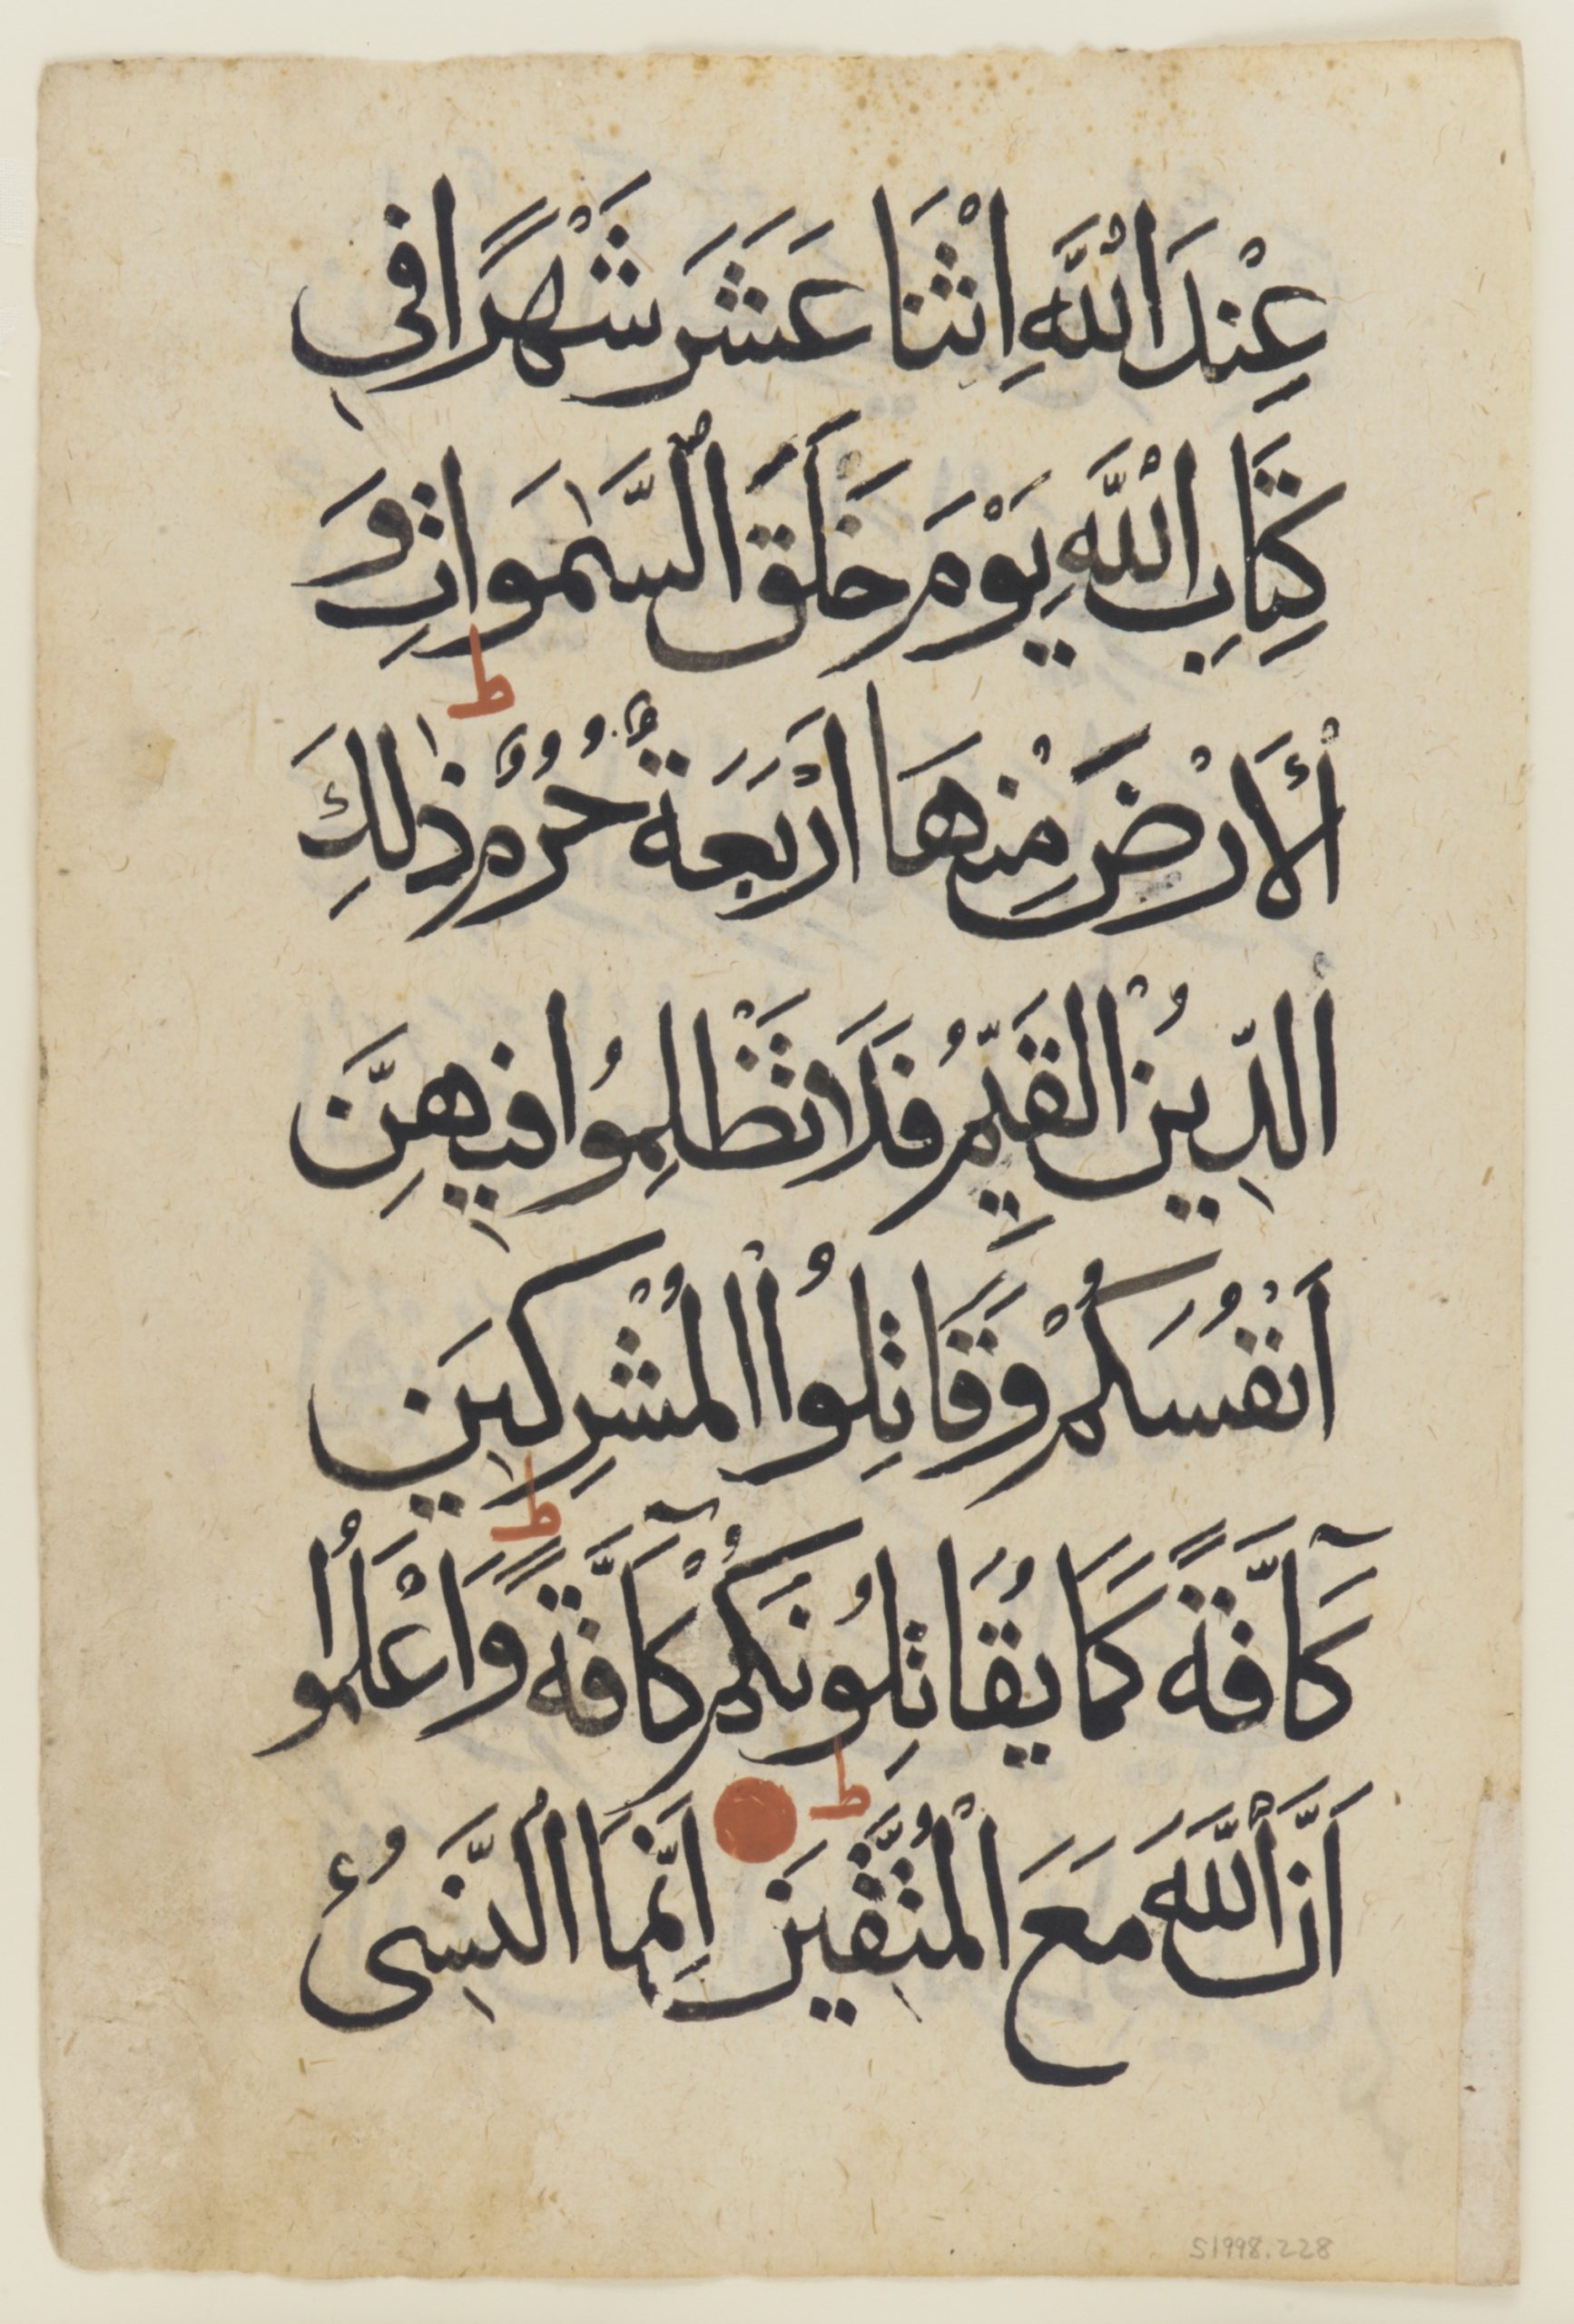 عِنْدَ اللَّهِ اثْنَا عَشَرَ شَهْرًا فِي
كِتَابِ اللَّهِ يَوْمَ خَلَقَ السَّمٰوَاتِ وَ
ط
الْأَرْضَ مِنْهَا أَرْبَعَةٌ حُرُمٌ ذٰلِكَ
الدِّينُ الْقَيِّمُ فَلَا تَظْلِمُوا فِيهِنَّ
أَنْفُسَكُمْ وَقَاتِلُوا الْمُشْرِكِينَ
ط
كَآفَّةً كَمَا يُقَاتِلُونَكُمْ كَآفَّةً وَاعْلَمُوا
ط
أَنَّ اللَّهَ مَعَ الْمُتَّقِينَ إِنَّمَا النَّسِىءُ
S1998.228